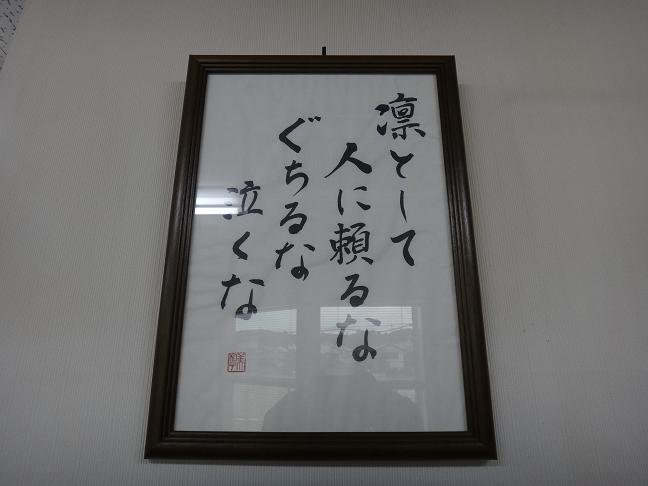 凛として
人に頼るな
ぐちるな
泣くな